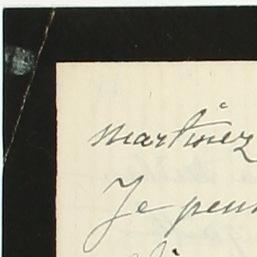 Martinez
Je peu